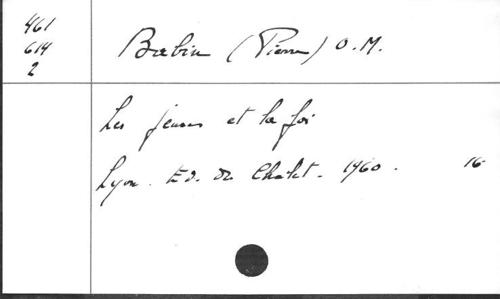 461
614
2
Babin (Pierre) O.M.
Les jeunes et la foi
Lyon. Ed. du Chalet. 1960. 16